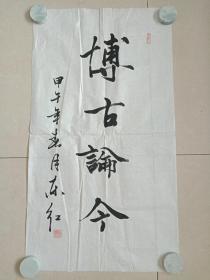 博古論今
甲午年春月东红